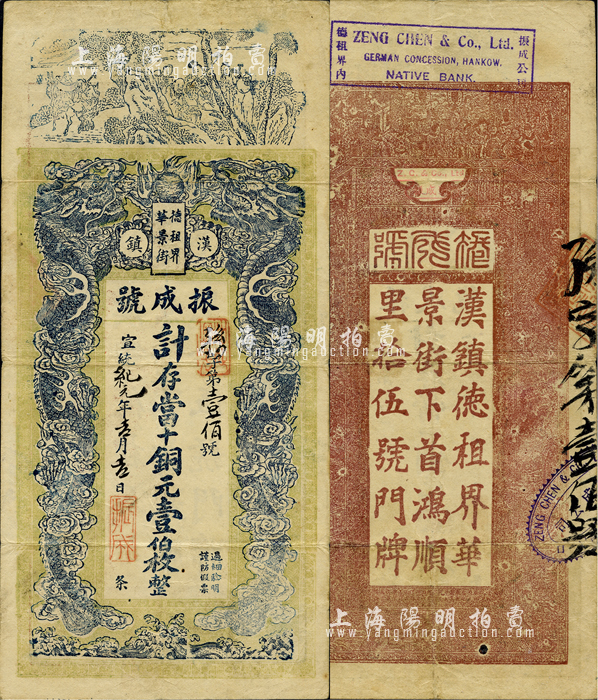 上海陽明拍賣
www.yangmingauction.com
德租界
華景街
漢
鎮
振成號
字第壹佰號
計存當十銅元壹佰枚整
宣統紀元年 月 日
過細驗明
謹防假票
條
上海陽明拍賣
www.yangmingauction.com
德租界內
ZENG CHEN & Co., Ltd.
GERMAN CONCESSION, HANKOW.
NATIVE BANK.
振成公司
Z. C. & Co., Ltd.
振成號
漢鎮德租界華
景街下首鴻順
里拾伍號門牌
ZENG CHEN & Co
上海陽明拍賣
www.yangmingauction.com